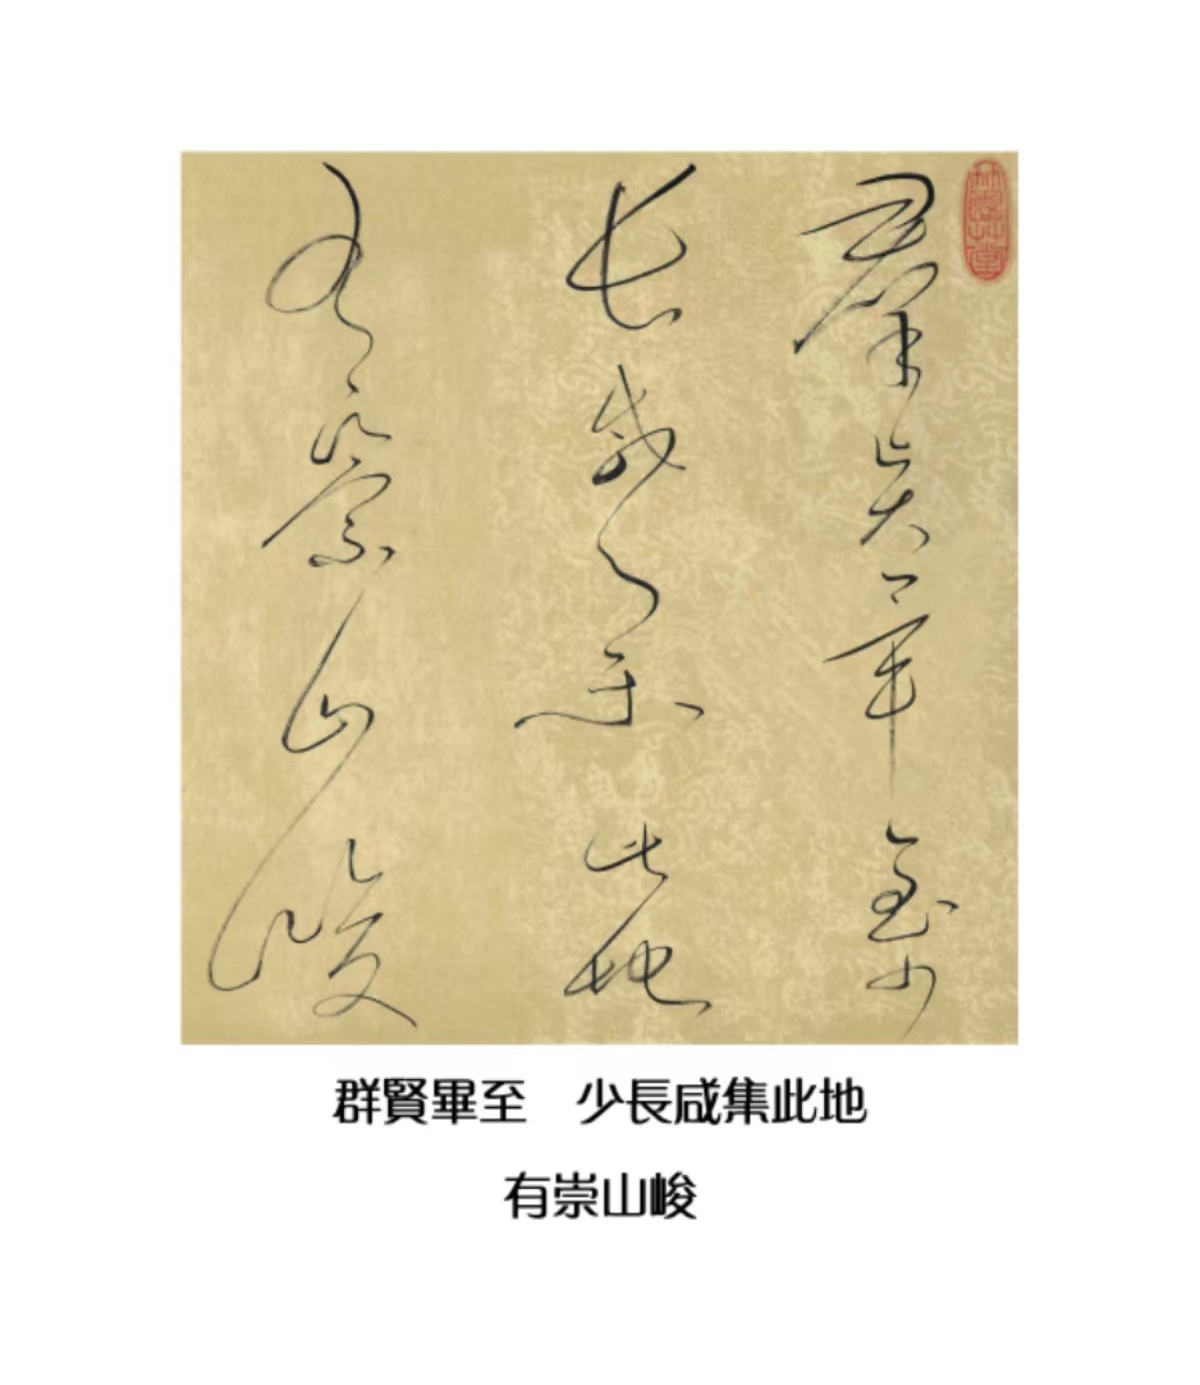 羣賢畢至少
長咸集此地
有崇山峻
群賢畢至　少長咸集此地
有崇山峻